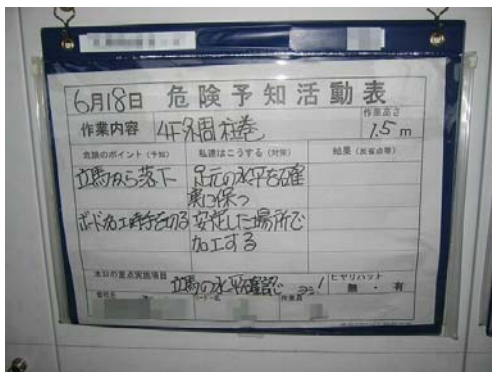 6月18日 危険予知活動表
作業内容 4F外周柱巻 作業高さ 1.5 m
危険のポイント（予知） 私達はこうする（対策） 結果（反省点等）
立馬から落下 足元の水平を確
実に保つ
ボード加工時手を切る 安定した場所で
加工する
本日の重点実施項目 立馬の水平確認 ヨシ! ヒヤリハット
無 ・ 有
会社名 リーダー名 作業員